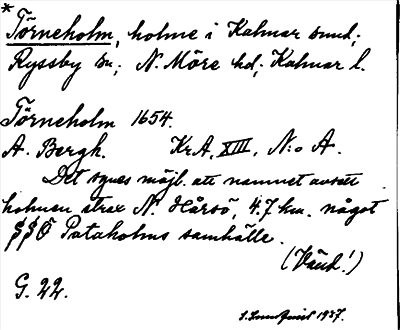 * Törneholm, holme i Kalmar sund;
Ryssby sn; N. Möre hd; Kalmar l.
Törneholm 1654.
A. Bergh. Kr.A. XIII, N:o A.
Det synes möjl. att namnet avsett
holmen strax N. Hårsö, 4.7 km. något
§§Ö Pataholms samhälle.
(Vänd!)
G. 22.
1937.